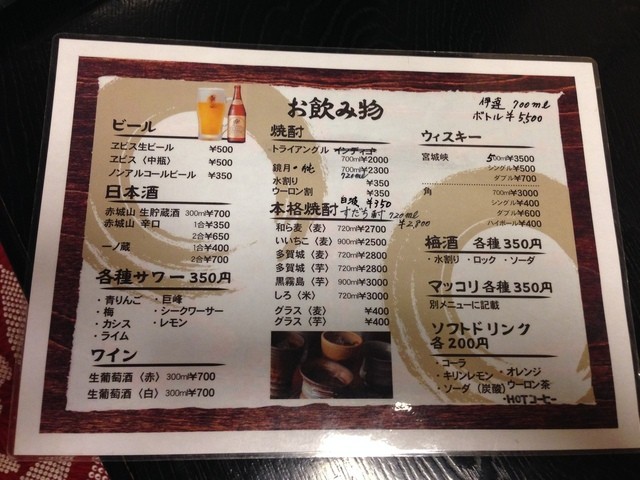 お飲み物
伊達 700ml
ボトル¥5,500
ビール
ヱビス生ビール ¥500
ヱビス〈中瓶〉 ¥500
ノンアルコールビール ¥350
日本酒
赤城山 生貯蔵酒 300ml¥700
赤城山 辛口 1合¥350
2合¥650
一ノ蔵 1合¥400
2合¥700
各種サワー 350円
・青りんご ・巨峰
・梅 ・シークワーサー
・カシス ・レモン
・ライム
ワイン
生葡萄酒〈赤〉 300ml¥700
生葡萄酒〈白〉 300ml¥700
焼酎
トライアングル インディゴ
700ml¥2000
鏡月・他 700ml¥2300
720ml
水割り ¥350
ウーロン割 ¥350
本格焼酎
白波 ¥350
すだち酎 720ml
¥2,800
和ら麦〈麦〉 720ml¥2700
いいちこ〈麦〉 900ml¥2500
多賀城〈麦〉 720ml¥2800
多賀城〈芋〉 720ml¥2800
黒霧島〈芋〉 900ml¥3000
しろ〈米〉 720ml¥3000
グラス〈麦〉 ¥400
グラス〈芋〉 ¥400
ウィスキー
宮城峡 500ml¥3500
シングル¥500
ダブル¥700
角 700ml¥3000
シングル¥400
ダブル¥600
ハイボール¥400
梅酒 各種350円
・水割り ・ロック ・ソーダ
マッコリ 各種350円
別メニューに記載
ソフトドリンク
各200円
・コーラ ・オレンジ
・キリンレモン ・ウーロン茶
・ソーダ(炭酸) ・HOTコーヒー